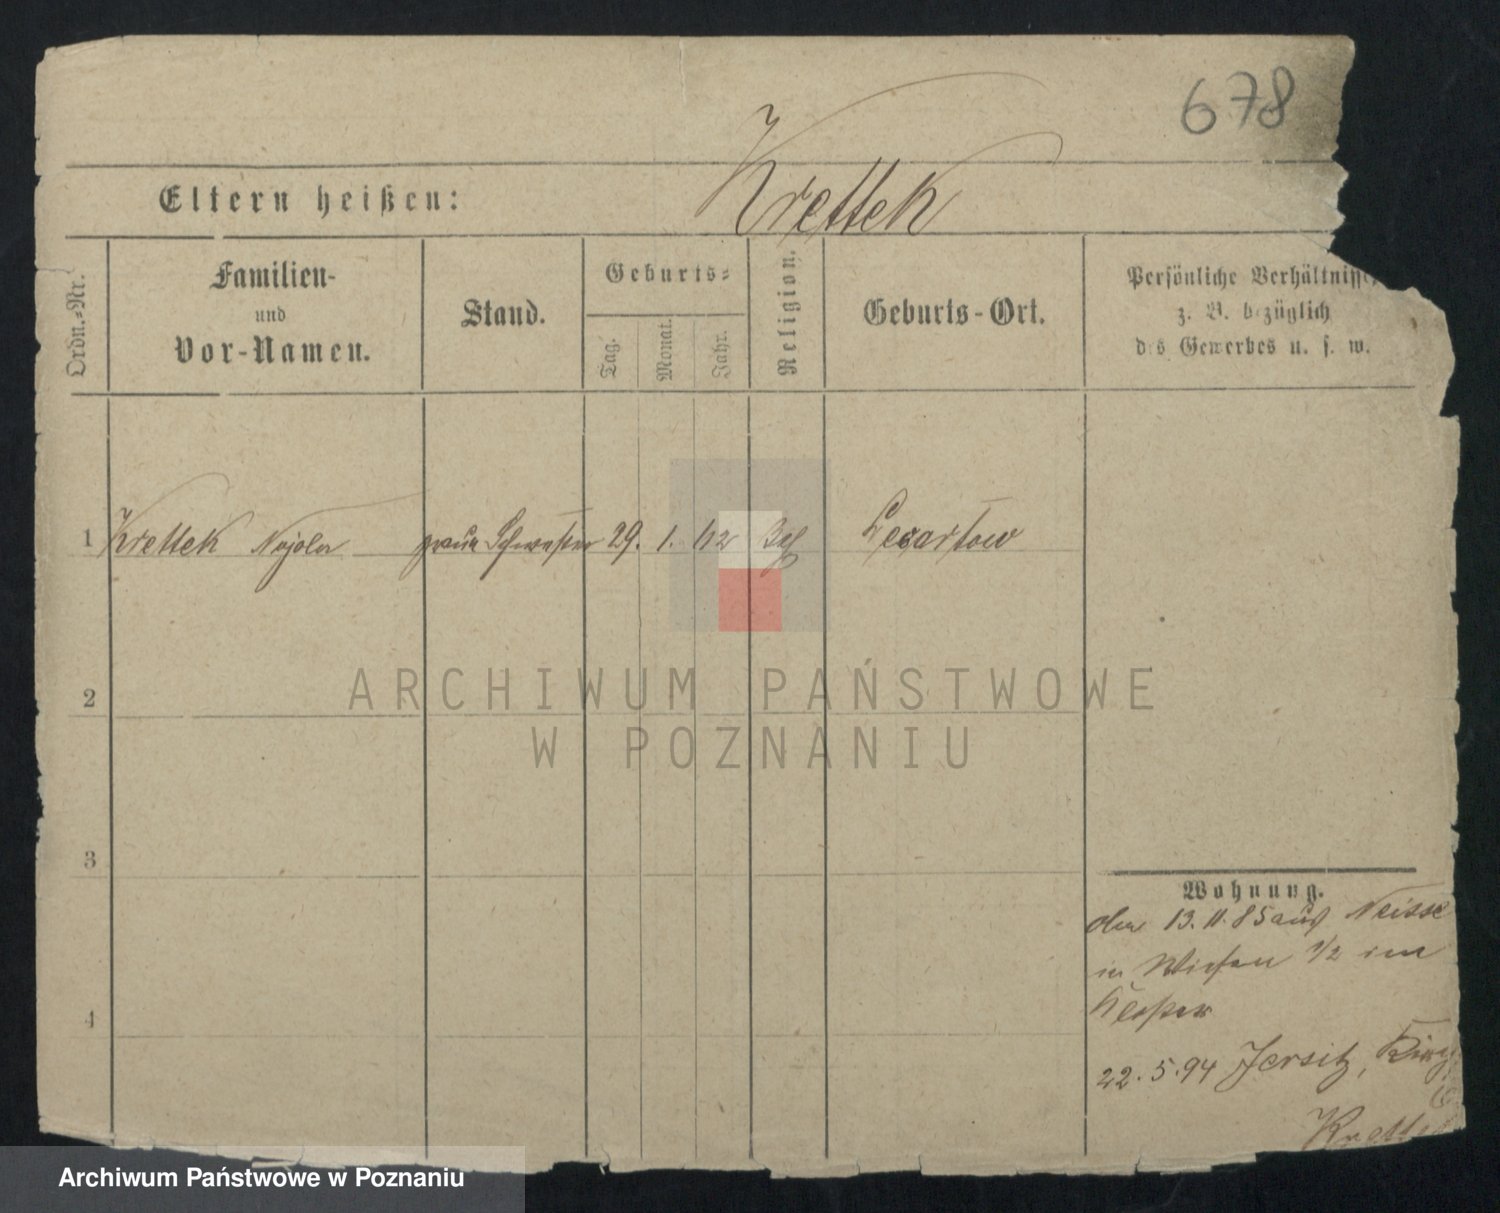 678
Krettek
Eltern heißen:
Ordn.-Nr.
Familien-
und
Vor-Namen.
Stand.
Geburts-
Tag.
Monat.
Jahr.
Religion.
Geburts-Ort.
Persönliche Verhältnisse,
z. B. bezüglich
des Gewerbes u. s. w.
1 Krettek graue Schwester 29. 1.
2
3
4
ARCHIWUM PAŃSTWOWE
W POZNANIU
Wohnung.
13. 11. 85 aus Neisse
in Wiesen 1/2 im
Kloster
22. 5. 94 Jersitz,
Archiwum Państwowe w Poznaniu